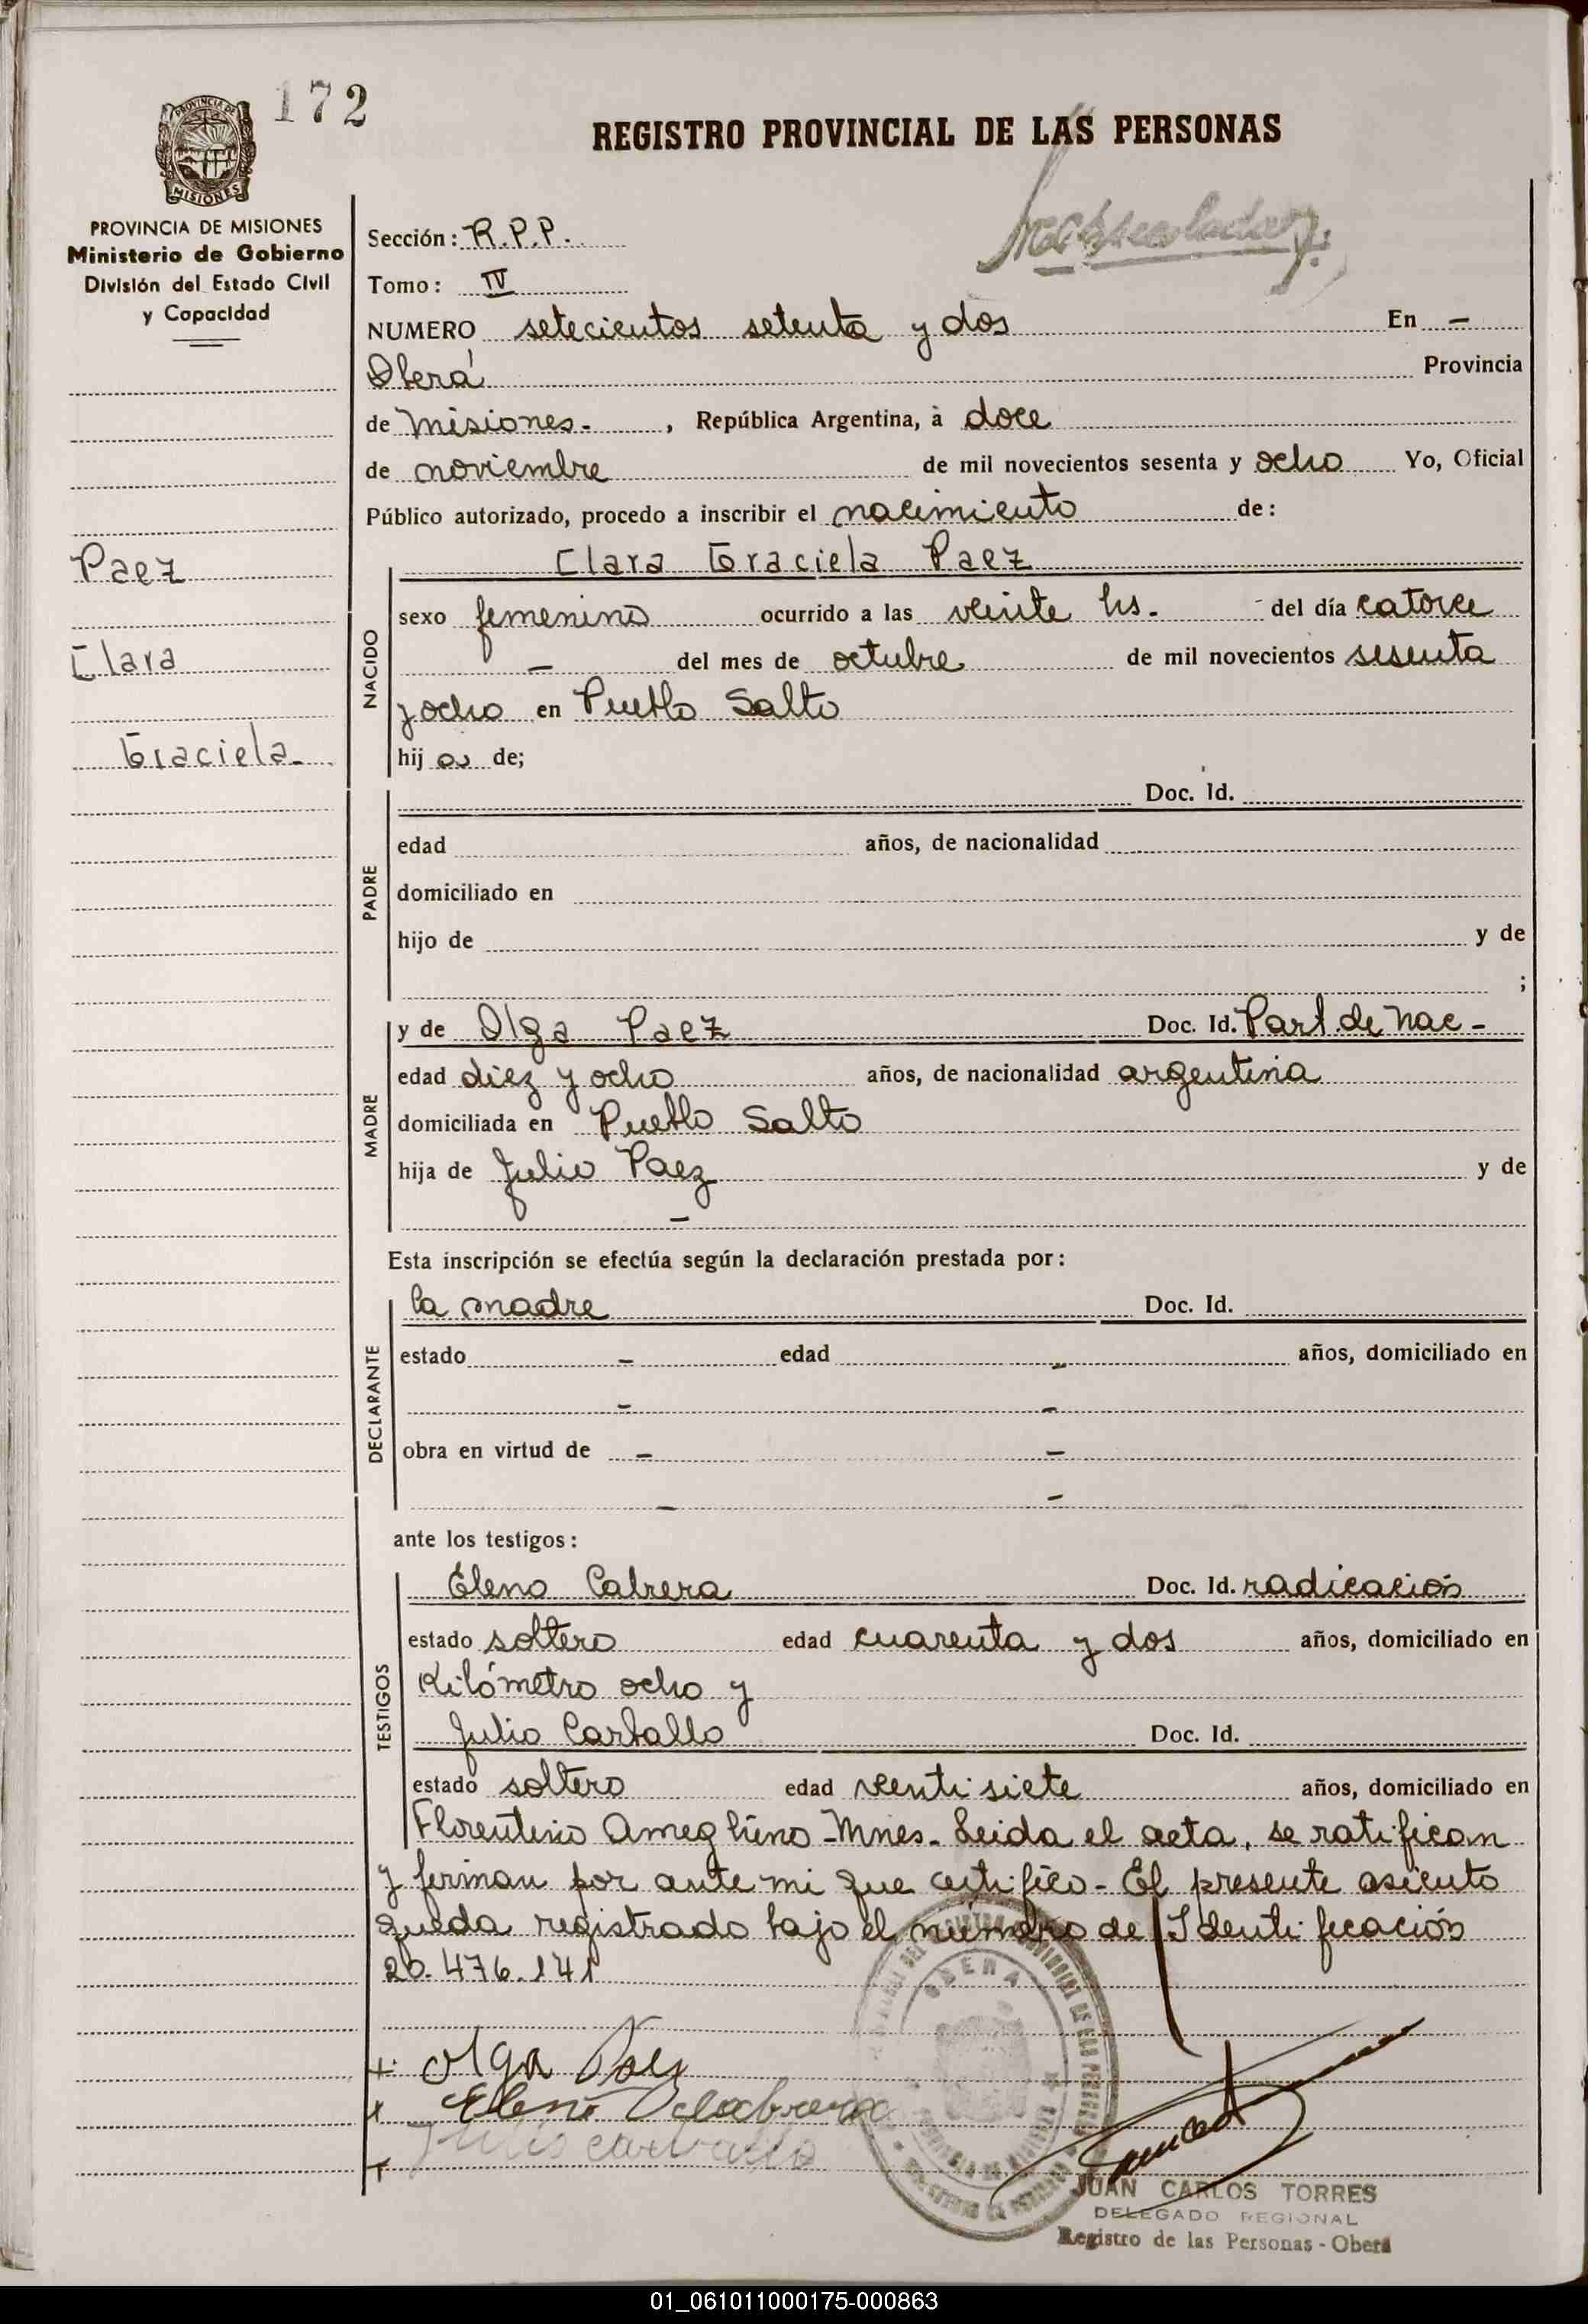 172
REGISTRO PROVINCIAL DE LAS PERSONAS
PROVINCIA DE MISIONES
Ministerio de Gobierno
División del Estado Civil
y Capacidad
Sección: R.P.P.
Tomo: IV
NUMERO setecientos setenta y dos En -
Oberá Provincia
de Misiones - , República Argentina, à doce
de noviembre de mil novecientos sesenta y ocho Yo, Oficial
Público autorizado, procedo a inscribir el nacimiento de:
Paez
Clara
Graciela -
NACIDO
Clara Graciela Paez
sexo femenino ocurrido a las veinte hs. - del día catorce
- del mes de octubre de mil novecientos sesenta
y ocho en Pueblo Salto
hij a de;
PADRE
Doc. Id.
edad años, de nacionalidad
domiciliado en
hijo de y de
;
MADRE
y de Olga Paez Doc. Id. Part. de Nac -
edad diez y ocho años, de nacionalidad argentina
domiciliada en Pueblo Salto
hija de Julio Paez y de
-
Esta inscripción se efectúa según la declaración prestada por:
DECLARANTE
la madre Doc. Id.
estado - edad - años, domiciliado en
- -
obra en virtud de - -
- -
ante los testigos:
TESTIGOS
Eleno Cabrera Doc. Id. radicación
estado soltero edad cuarenta y dos años, domiciliado en
Kilómetro ocho y
Julio Carballo Doc. Id.
estado soltero edad venti siete años, domiciliado en
Florentino Ameghino - Mnes - Leida el acta, se ratifican
y firman por ante mi que certifico - El presente asiento
queda registrado bajo el número de Identificación
20.476.141
Olga Paez
Eleno Cabrera
carballo
OBERA
JUAN CARLOS TORRES
DELEGADO REGIONAL
Registro de las Personas - Oberá
01_061011000175-000863